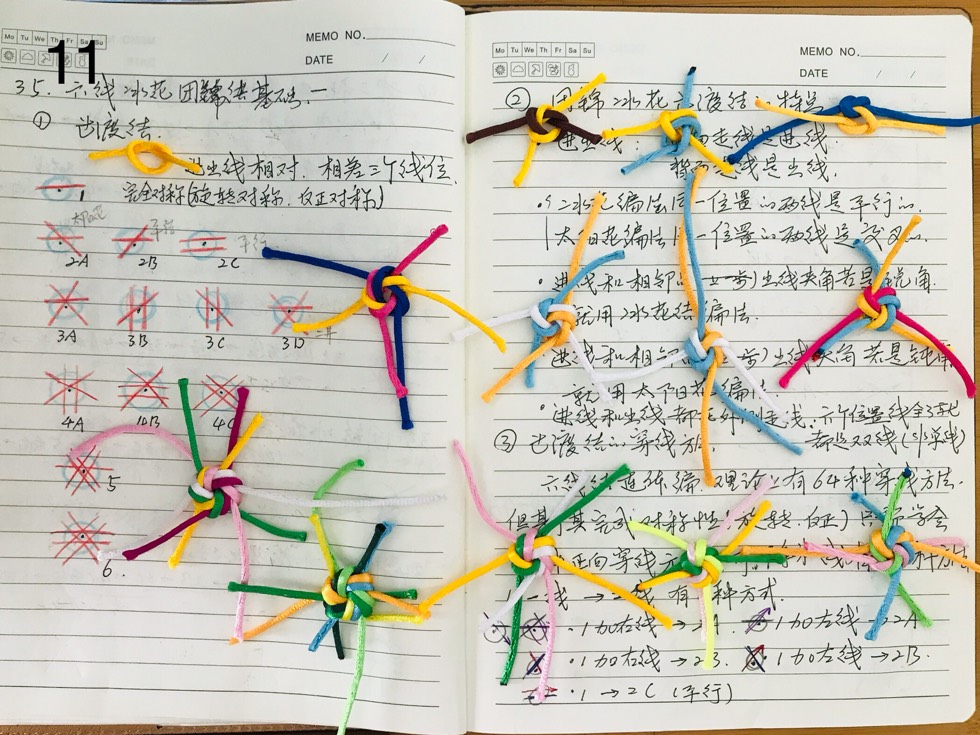 11
Mo Tu We Th Fr Sa Su
MEMO NO.
DATE / /
35. 六线冰花团锦结基础一
① 过渡结.
进出线相对. 相差三个线位.
完全对称(旋转对称. 反正对称)
1
2A 太阳花 2B 平行 2C 平行
3A 3B 3C 3D
4A 4B 4C
5
6.
Mo Tu We Th Fr Sa Su
MEMO NO.
DATE / /
② 团锦冰花过渡结 特点
进出线: 走线是进线
线是出线.
冰花编法同一位置的两线是平行的.
太阳花编法同一位置的两线是交叉的.
进线和相邻的 出线夹角若是锐角
就用冰花结编法.
进线和相邻 出线夹角若是钝角
就用太阳花编法.
进线和出线都在外侧走线. 六个位置线全了就
都是双线(非单线)
③ 过渡结的穿线方
六线结连续编. 理论上有64种穿线方法.
但其 其完 对称性(旋转. 反正) 只
正向穿线 种方
线→ 线 有 种方式.
·1加右线→2A ·1加右线→2A
·1加右线→2B. ·1加右线→2B.
·1→2C (平行)